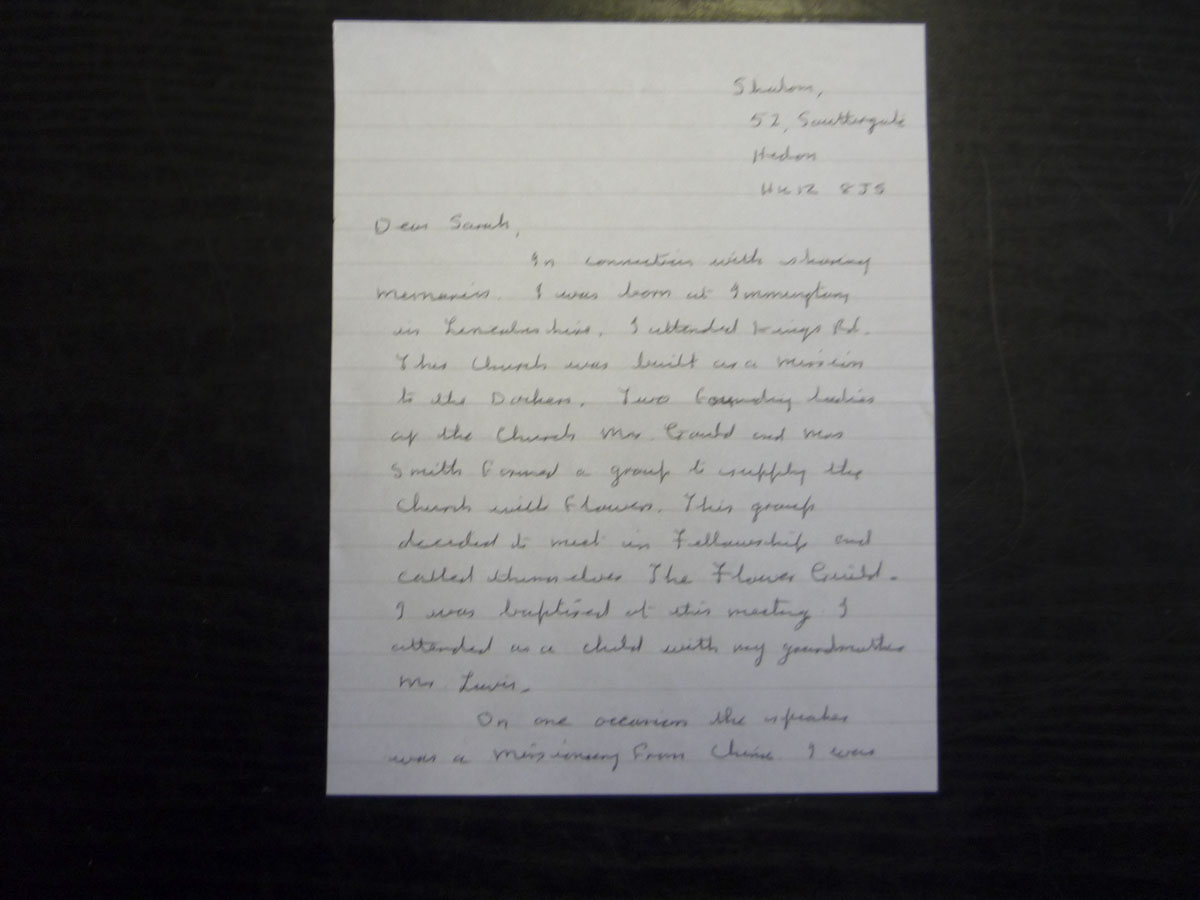 Shalom,
52, Southergate
Hedon
HU12 8JS
Dear Sarah,
In connection with sharing
memories. I was born at Immingham
in Lincolnshire. I attended Kings Rd.
This Church was built as a mission
to the Dockers. Two founding ladies
of the Church Mrs. Gauld and Mrs
Smith formed a group to supply the
church with flowers. This group
decided to meet in Fellowship and
called themselves The Flower Guild.
I was baptised at this meeting I
attended as a child with my grandmother
Mrs Lewis.
On one occasion the speaker
was a missionary from China I was